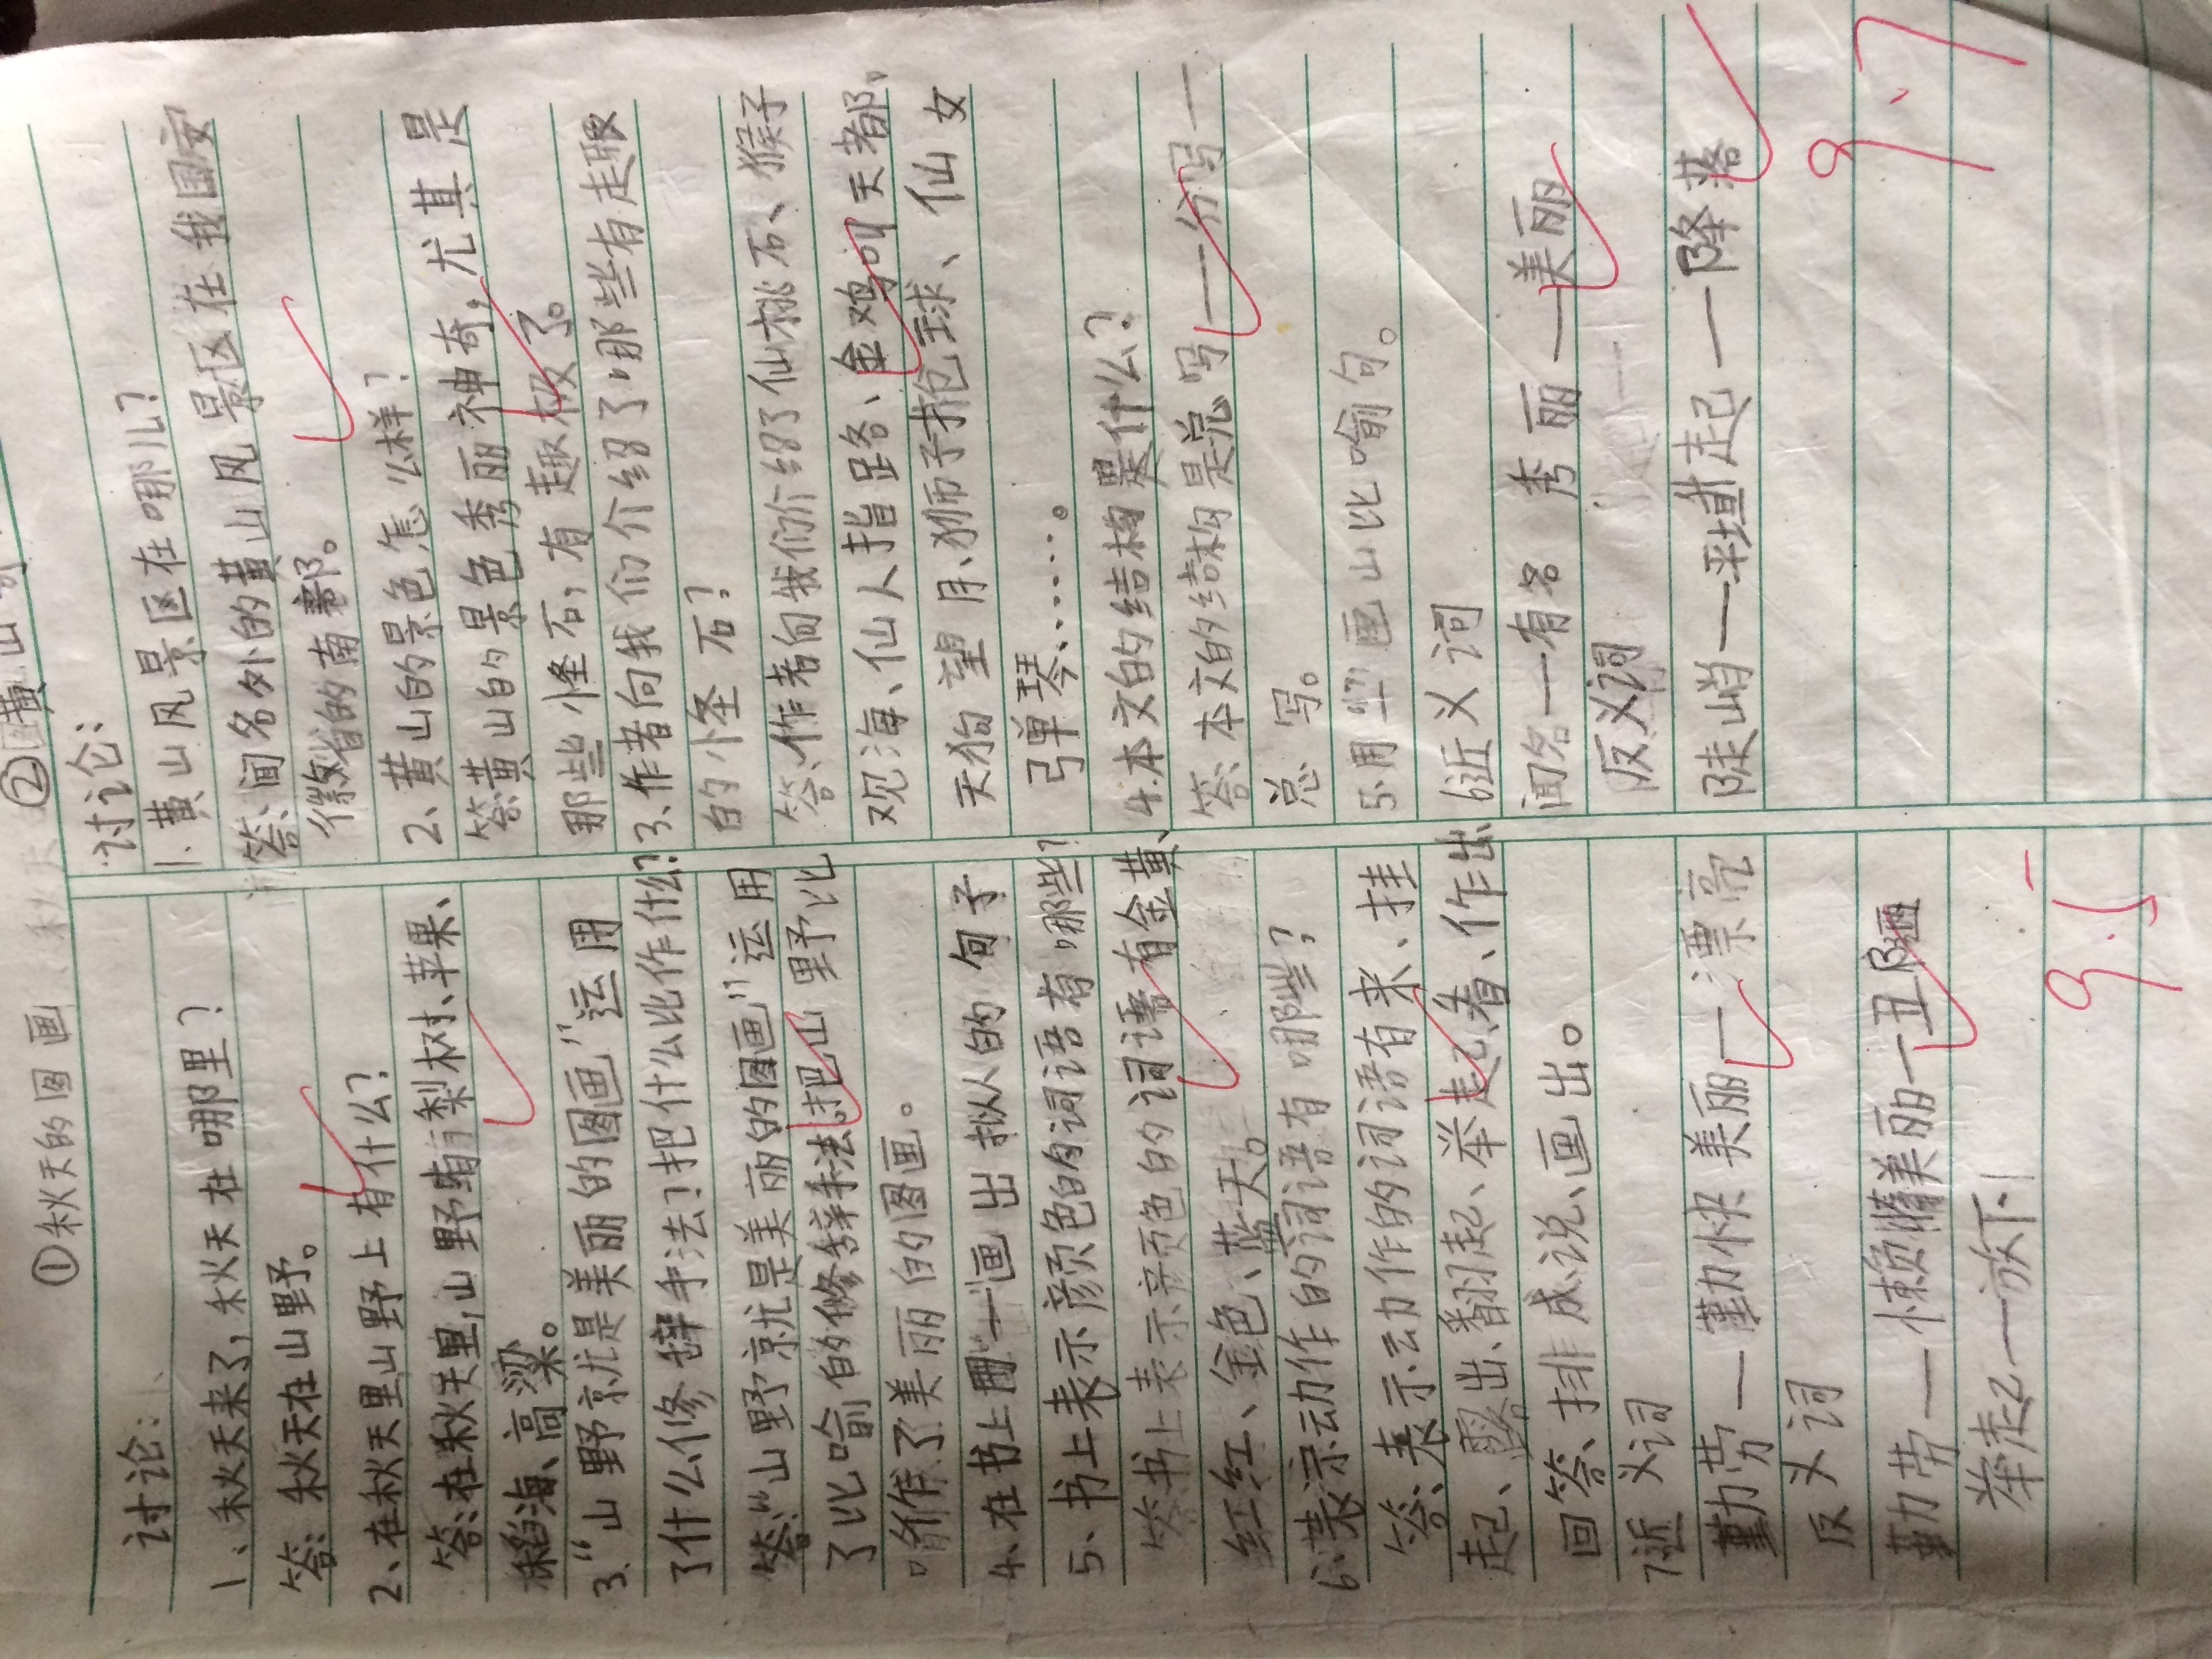 ①秋天的图画
讨论:
1、秋天来了,秋天在哪里?
答:秋天在山野。
2、在秋天里山野上有什么?
答:在秋天里,山野有梨树、苹果、
稻海、高粱。
3.“山野就是美丽的图画”运用
了什么修辞手法?把什么比作什么?
答:“山野就是美丽的图画”运用
了比喻的修辞手法,把山野比
喻作了美丽的图画。
4、在书上用“—”画出拟人的句子
5、书上表示颜色的词语有哪些?
答:书上表示颜色的词语有金黄、
红红、金色、蓝天。
6、表示动作的词语有哪些?
答:表示动作的词语有来、挂
起、露出、翻起、举起、看、作出、
回答、排成说、画出。
7近义词
勤劳—勤快 美丽—漂亮
反义词
勤劳—懒惰美丽—丑陋
举起—放下
9.5
②黄山
讨论:
1.黄山风景区在哪儿?
答:闻名中外的黄山风景区在我国安
徽省的南部。
2、黄山的景色怎么样?
答:黄山的景色秀丽神奇,尤其是
那些怪石,有趣极了。
3、作者向我们介绍了哪些有趣
的怪石?
答:作者向我们介绍了仙桃石、猴子
观海、仙人指路、金鸡叫天都、
天狗望月、狮子抱球、仙女
弓单琴……。
4.本文的结构是什么?
答:本文的结构是总写——分写—
总写。
5.用“”画出比喻句。
6近义词
闻名—有名 秀丽—美丽
反义词
陡峭—平坦升起—降落
9.7